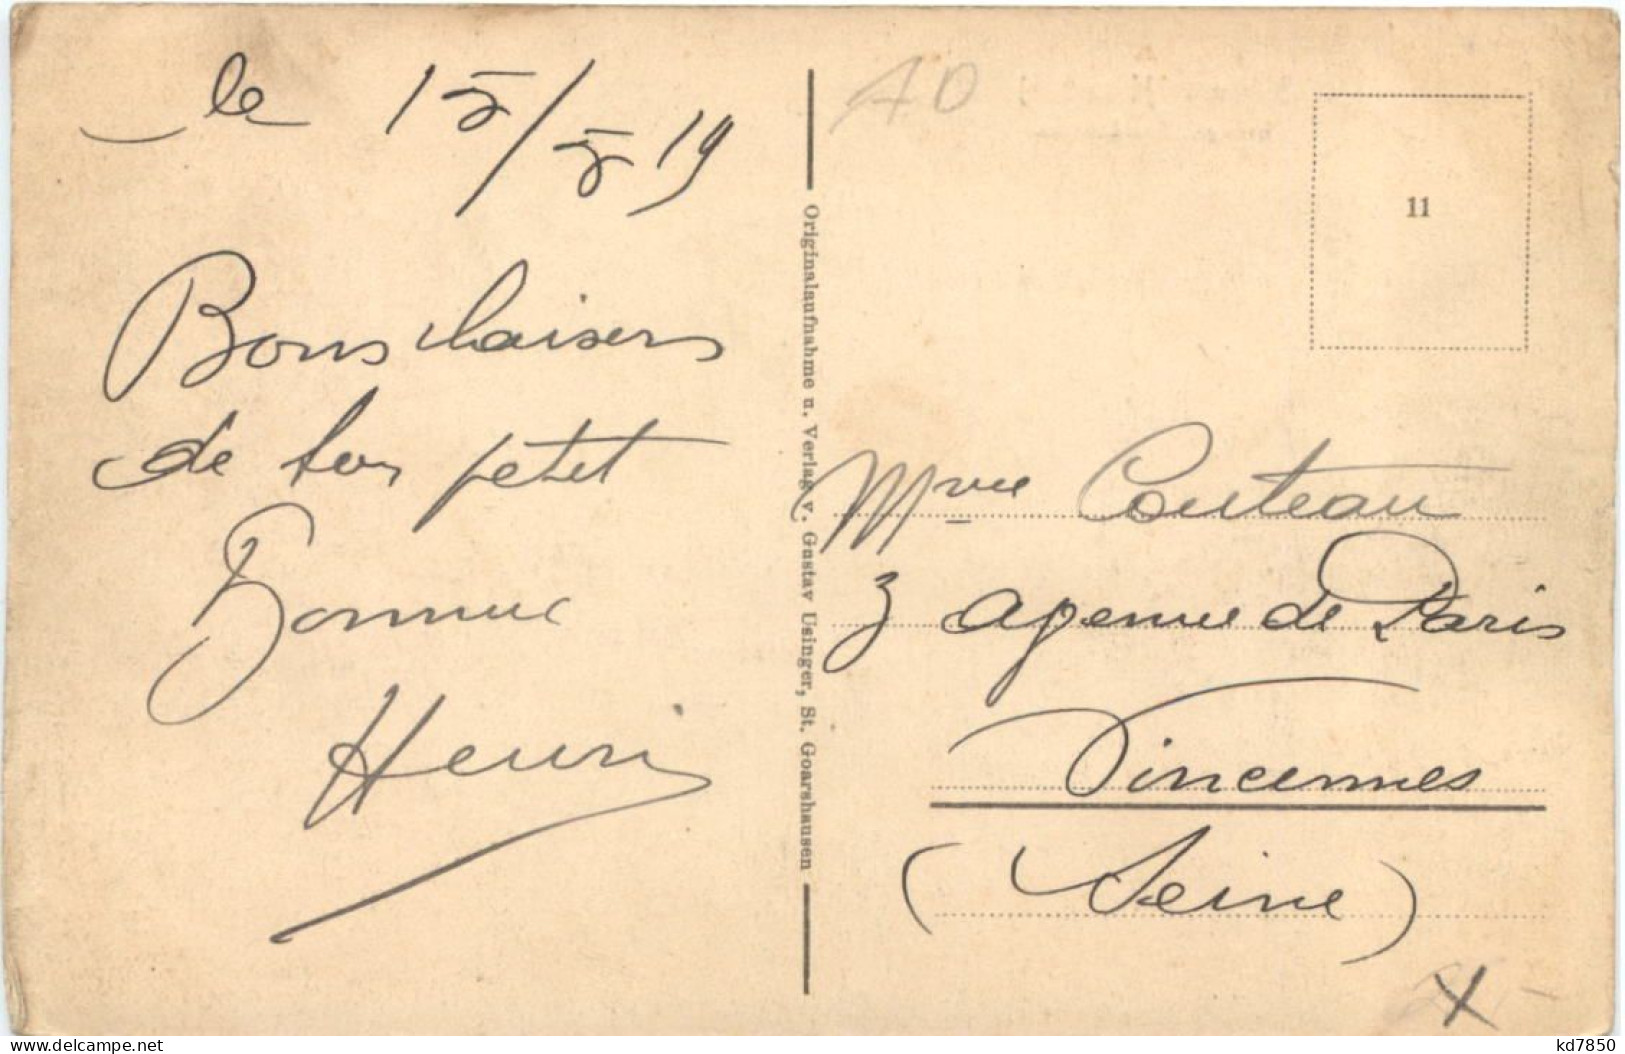 le 15/5 19
Bons baisers
de ton petit
Homme
Henri
Originalaufnahme u. Verlag v. Gustav Usinger, St. Goarshausen
AD
11
Mme Couteau
3 avenue de Paris
Vincennes
(Seine)
X
kd7850